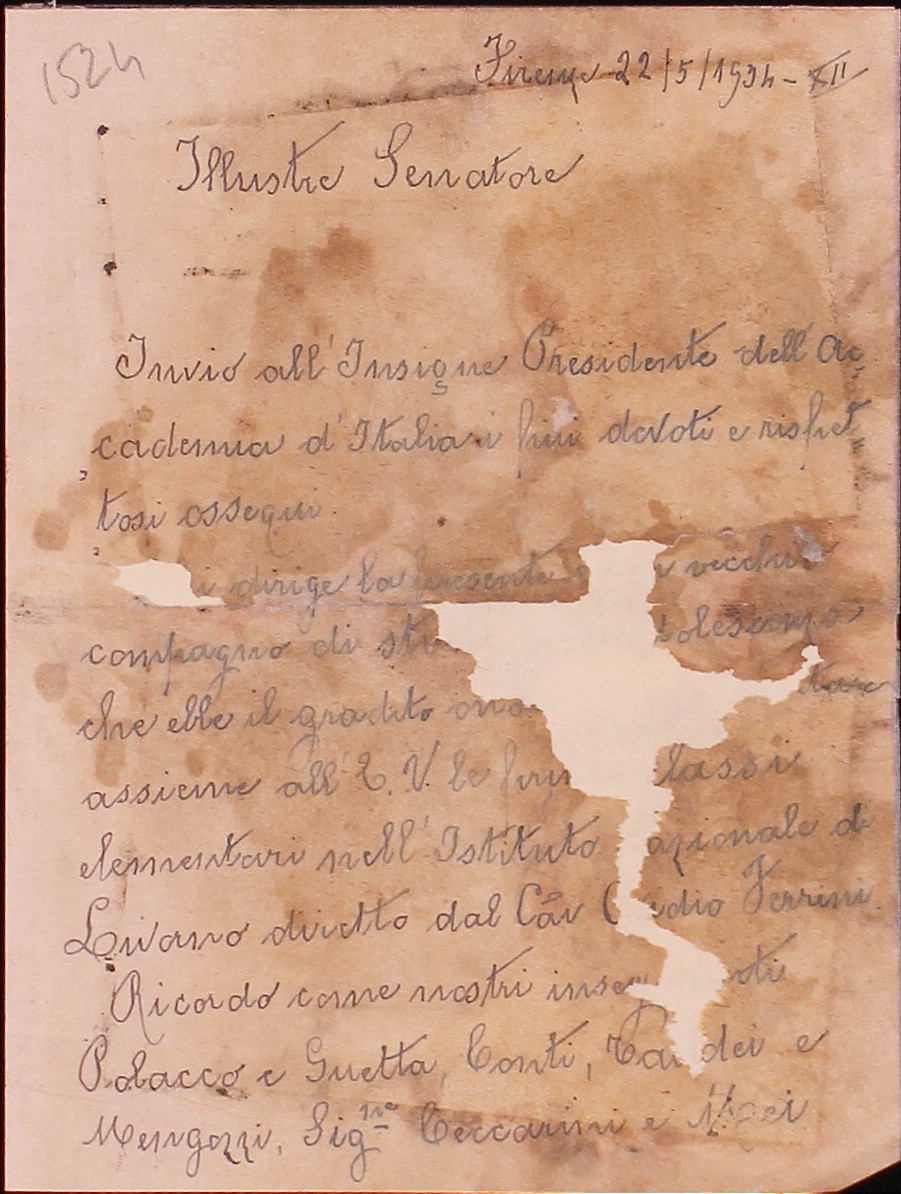 1524
Firenze 22/5/1934-XII
Illustre Senatore
Invio all'Insigne Presidente dell'Ac
cademia d'Italia i più devoti e rispet
tosi ossequi.
i dirige la presente vecchio
compagno di
che ebbe il gradito
assieme all'E. V. le lassi
elementari nell'Istituto azionale di
Livorno diretto dal Cav dio Ferrini.
Ricordo come nostri inseg ti
Polacco e Guetta, Conti, dei e
Mengozzi, Sig.ne Ceccarini e Mei